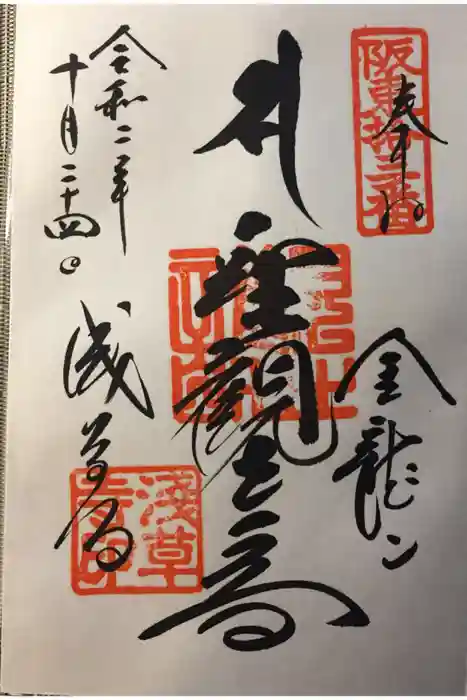 奉拝
阪東拾三番
金龍山
聖観世音
浅草寺
淺草寺印
令和二年
十月二十四日